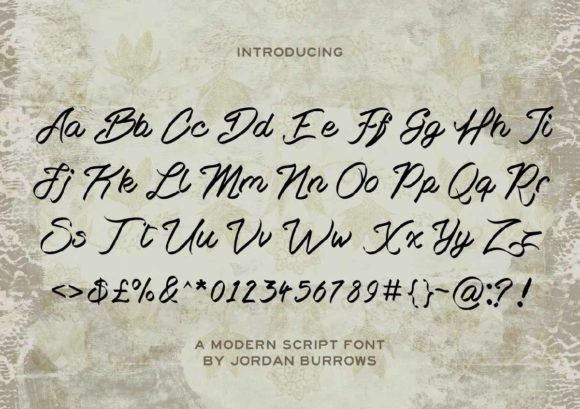 INTRODUCING
Aa Bb Cc Dd Ee Ff Gg Hh Ii
Jj Kk Ll Mm Nn Oo Pp Qq Rr
Ss Tt Uu Vv Ww Xx Yy Zz
<>$£%&^*0123456789#{}~@:?!
A MODERN SCRIPT FONT
BY JORDAN BURROWS